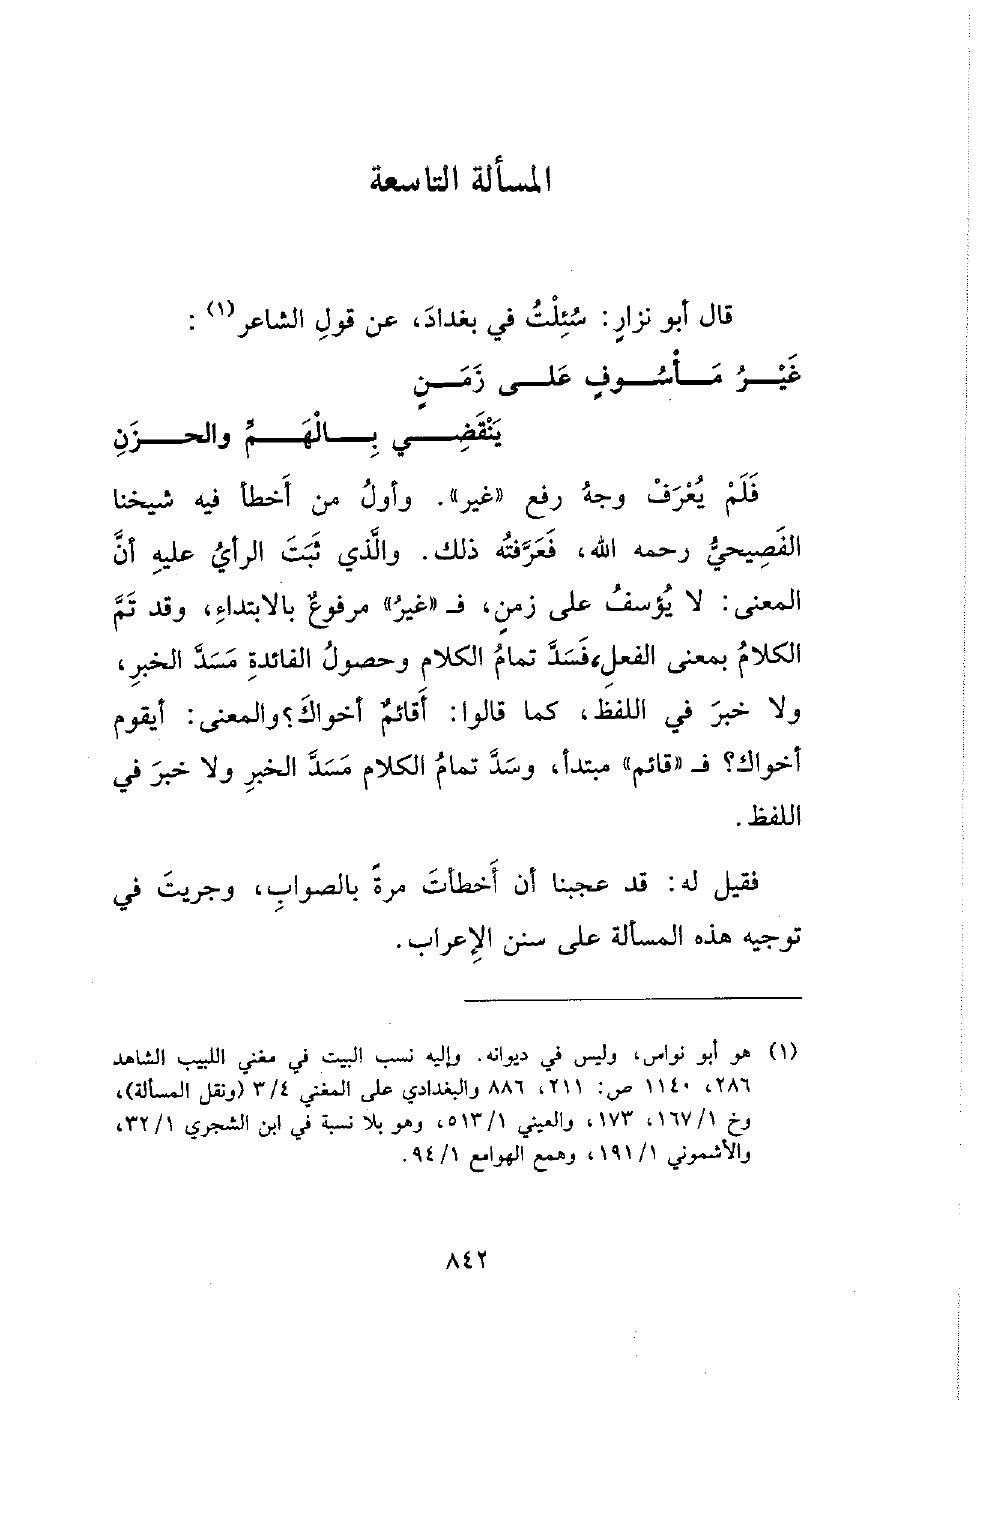 المسألة التاسعة
قال أبو نزارٍ: سُئِلْتُ في بغدادَ، عن قولِ الشاعر(١) :
غَيْرُ مَأْسُوفٍ عَلى زَمَنٍ
يَنْقَضِي بِالْهَمِّ والحزَنِ
فَلَمْ يُعْرَفْ وجهُ رفع «غير». وأولُ من أَخطأ فيه شيخنا
الفَصِيحيُّ رحمه الله، فَعَرَّفتُه ذلك. والَّذي ثَبَتَ الرأيُ عليهِ أنَّ
المعنى: لا يُؤسفُ على زمنٍ، فـ «غيرُ» مرفوعٌ بالابتداءِ، وقد تَمَّ
الكلامُ بمعنى الفعلِ، فَسَدَّ تمامُ الكلام وحصولُ الفائدةِ مَسَدَّ الخبرِ،
ولا خبرَ في اللفظ، كما قالوا: أَقائمٌ أخواكَ؟ والمعنى: أيقوم
أخواك؟ فـ «قائم» مبتدأ، وسَدَّ تمامُ الكلام مَسَدَّ الخبرِ ولا خبرَ في
اللفظ.
فقيل له: قد عجبنا أن أَخطأتَ مرةً بالصوابِ، وجريتَ في
توجيه هذه المسألة على سنن الإعراب.
(١) هو أبو نواس، وليس في ديوانه. وإليه نسب البيت في مغني اللبيب الشاهد
٢٨٦، ١١٤٠ ص: ٢١١، ٨٨٦ والبغدادي على المغني ٣/٤ (ونقل المسألة)،
وخ ١٦٧/١، ١٧٣، والعيني ٥١٣/١، وهو بلا نسبة في ابن الشجري ٣٢/١،
والأشموني ١٩١/١، وهمع الهوامع ٩٤/١.
٨٤٢